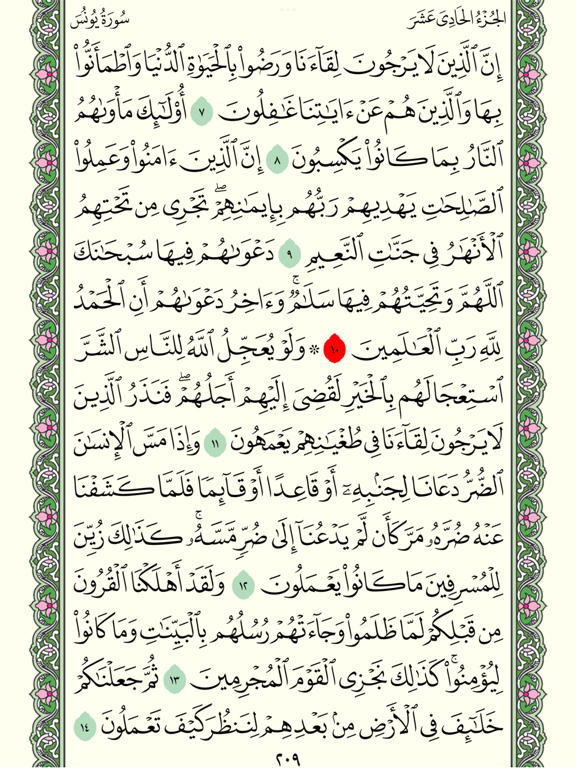 الجُزْءُ الحَادِىَ عَشَرَ
سُورَةُ يُونُسَ
إِنَّ ٱلَّذِينَ لَا يَرْجُونَ لِقَآءَنَا وَرَضُوا۟ بِٱلْحَيَوٰةِ ٱلدُّنْيَا وَٱطْمَأَنُّوا۟
بِهَا وَٱلَّذِينَ هُمْ عَنْ ءَايَٰتِنَا غَٰفِلُونَ ٧ أُو۟لَٰٓئِكَ مَأْوَىٰهُمُ
ٱلنَّارُ بِمَا كَانُوا۟ يَكْسِبُونَ ٨ إِنَّ ٱلَّذِينَ ءَامَنُوا۟ وَعَمِلُوا۟
ٱلصَّٰلِحَٰتِ يَهْدِيهِمْ رَبُّهُم بِإِيمَٰنِهِمْۖ تَجْرِى مِن تَحْتِهِمُ
ٱلْأَنْهَٰرُ فِى جَنَّٰتِ ٱلنَّعِيمِ ٩ دَعْوَىٰهُمْ فِيهَا سُبْحَٰنَكَ
ٱللَّهُمَّ وَتَحِيَّتُهُمْ فِيهَا سَلَٰمٌۚ وَءَاخِرُ دَعْوَىٰهُمْ أَنِ ٱلْحَمْدُ
لِلَّهِ رَبِّ ٱلْعَٰلَمِينَ ١٠ ۞ وَلَوْ يُعَجِّلُ ٱللَّهُ لِلنَّاسِ ٱلشَّرَّ
ٱسْتِعْجَالَهُم بِٱلْخَيْرِ لَقُضِىَ إِلَيْهِمْ أَجَلُهُمْۖ فَنَذَرُ ٱلَّذِينَ
لَا يَرْجُونَ لِقَآءَنَا فِى طُغْيَٰنِهِمْ يَعْمَهُونَ ١١ وَإِذَا مَسَّ ٱلْإِنسَٰنَ
ٱلضُّرُّ دَعَانَا لِجَنۢبِهِۦٓ أَوْ قَاعِدًا أَوْ قَآئِمًا فَلَمَّا كَشَفْنَا
عَنْهُ ضُرَّهُۥ مَرَّ كَأَن لَّمْ يَدْعُنَآ إِلَىٰ ضُرٍّ مَّسَّهُۥۚ كَذَٰلِكَ زُيِّنَ
لِلْمُسْرِفِينَ مَا كَانُوا۟ يَعْمَلُونَ ١٢ وَلَقَدْ أَهْلَكْنَا ٱلْقُرُونَ
مِن قَبْلِكُمْ لَمَّا ظَلَمُوا۟ وَجَآءَتْهُمْ رُسُلُهُم بِٱلْبَيِّنَٰتِ وَمَا كَانُوا۟
لِيُؤْمِنُوا۟ۚ كَذَٰلِكَ نَجْزِى ٱلْقَوْمَ ٱلْمُجْرِمِينَ ١٣ ثُمَّ جَعَلْنَٰكُمْ
خَلَٰٓئِفَ فِى ٱلْأَرْضِ مِنۢ بَعْدِهِمْ لِنَنظُرَ كَيْفَ تَعْمَلُونَ ١٤
٢٠٩